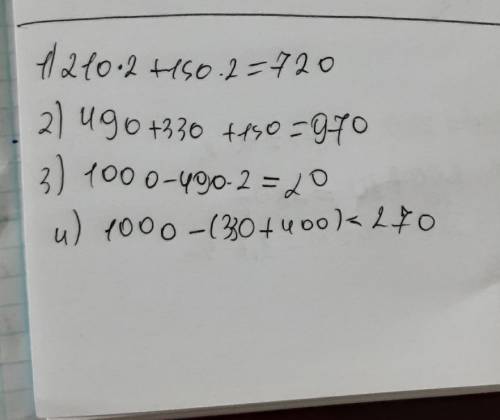 1) 210·2 +150·2=720
2) 490+330 +150=970
3) 1000-490·2=20
4) 1000-(330+400)=270